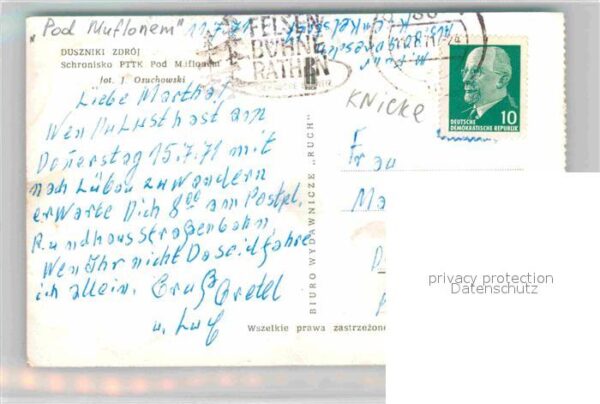 "Pod Muflonem" 11.7.71
DUSZNIKI ZDRÓJ
Schronisko PTTK Pod Muflonem
fot. J. Osuchowski
FELSEN
BÜHNE
RATHEN
KNICKE
10
DEUTSCHE
DEMOKRATISCHE REPUBLIK
Liebe Martha!
Wen Du Lust hast am
Donerstag 15.7.71 mit
nach Lübau zu wandern
erwarte Dich 8⁰⁰ am Postpl.
Rundhausstraßenbahn.
Wen Ihr nicht Da seid fahre
ich allein. Gruß Gretel
u.
BIURO WYDAWNICZE „RUCH"
Frau
Ma
Wszelkie prawa zastrzeżone
privacy protection
Datenschutz